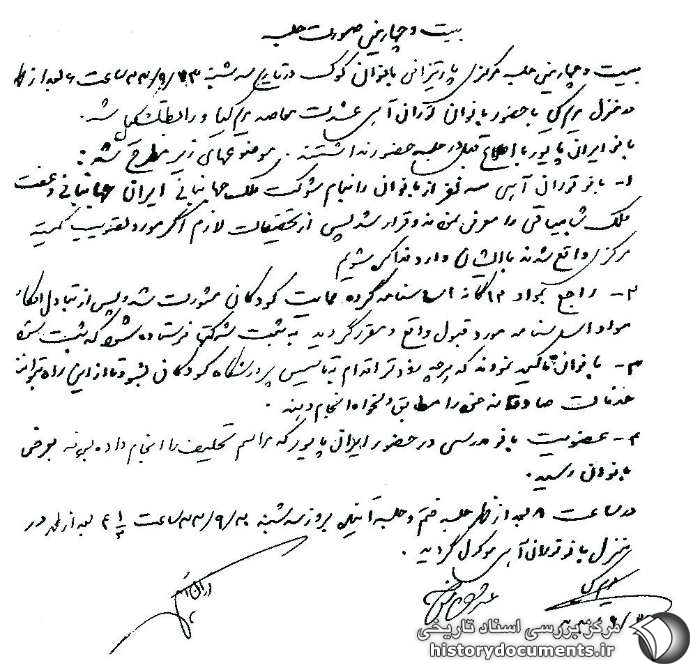 بیست و چهارمین صورت جلسه
بیست و چهارمین جلسه مرکزی پارتیزانی بانوان کوک در تاریخ سه شنبه ۳۳/۹/۱۳ ساعت ۶ بعد از ظهر
در منزل مریم کیا با حضور بانوان توران آهی عشرت معاصد مریم کیا و رابط تشکیل شد.
بانو ایران پاپور با اطلاع قبلی در جلسه حضور نداشتند. موضوعهای زیر مطرح شد:
۱- بانو توران آهی سه نفر از بانوان را بنام شوکت ملک جهانبانی ایران جهانبانی و عفت
ملک شامبیاتی را معرفی نمودند و قرار شد پس از تحقیقات لازم اگر مورد تصویب کمیته
مرکزی واقع شدند با ایشان وارد مذاکره شویم
۲- راجع بمواد ۱۳ گانه اساسنامه گروه حمایت کودکان مشورت شد و پس از تبادل افکار
مواد اساسنامه مورد قبول واقع و مقرر گردید به ثبت شرکتها فرستاده شود که ثبت شود
۳- بانوان تاکید نمودند که هر چه زودتر اقدام بتاسیس پرورشگاه کودکان بشود تا از این راه بتوانند
خدمات صادقانه خود را مطابق دلخواه انجام دهند.
۴- عضویت بانو مدرسی در حضور ایران پاپور که مراسم تحلیف را انجام داده بودند بعرض
بانوان رسید.
در ساعت ۸ بعد از ظهر جلسه ختم و جلسه آتیه بروز سه شنبه ۳۳/۹/۲۰ ساعت ۴ ۱/۲ بعد از ظهر در
منزل بانو توران آهی موکول گردید.
مریم کیا
توران آهی
مرکز بررسی اسناد تاریخی
historydocuments.ir